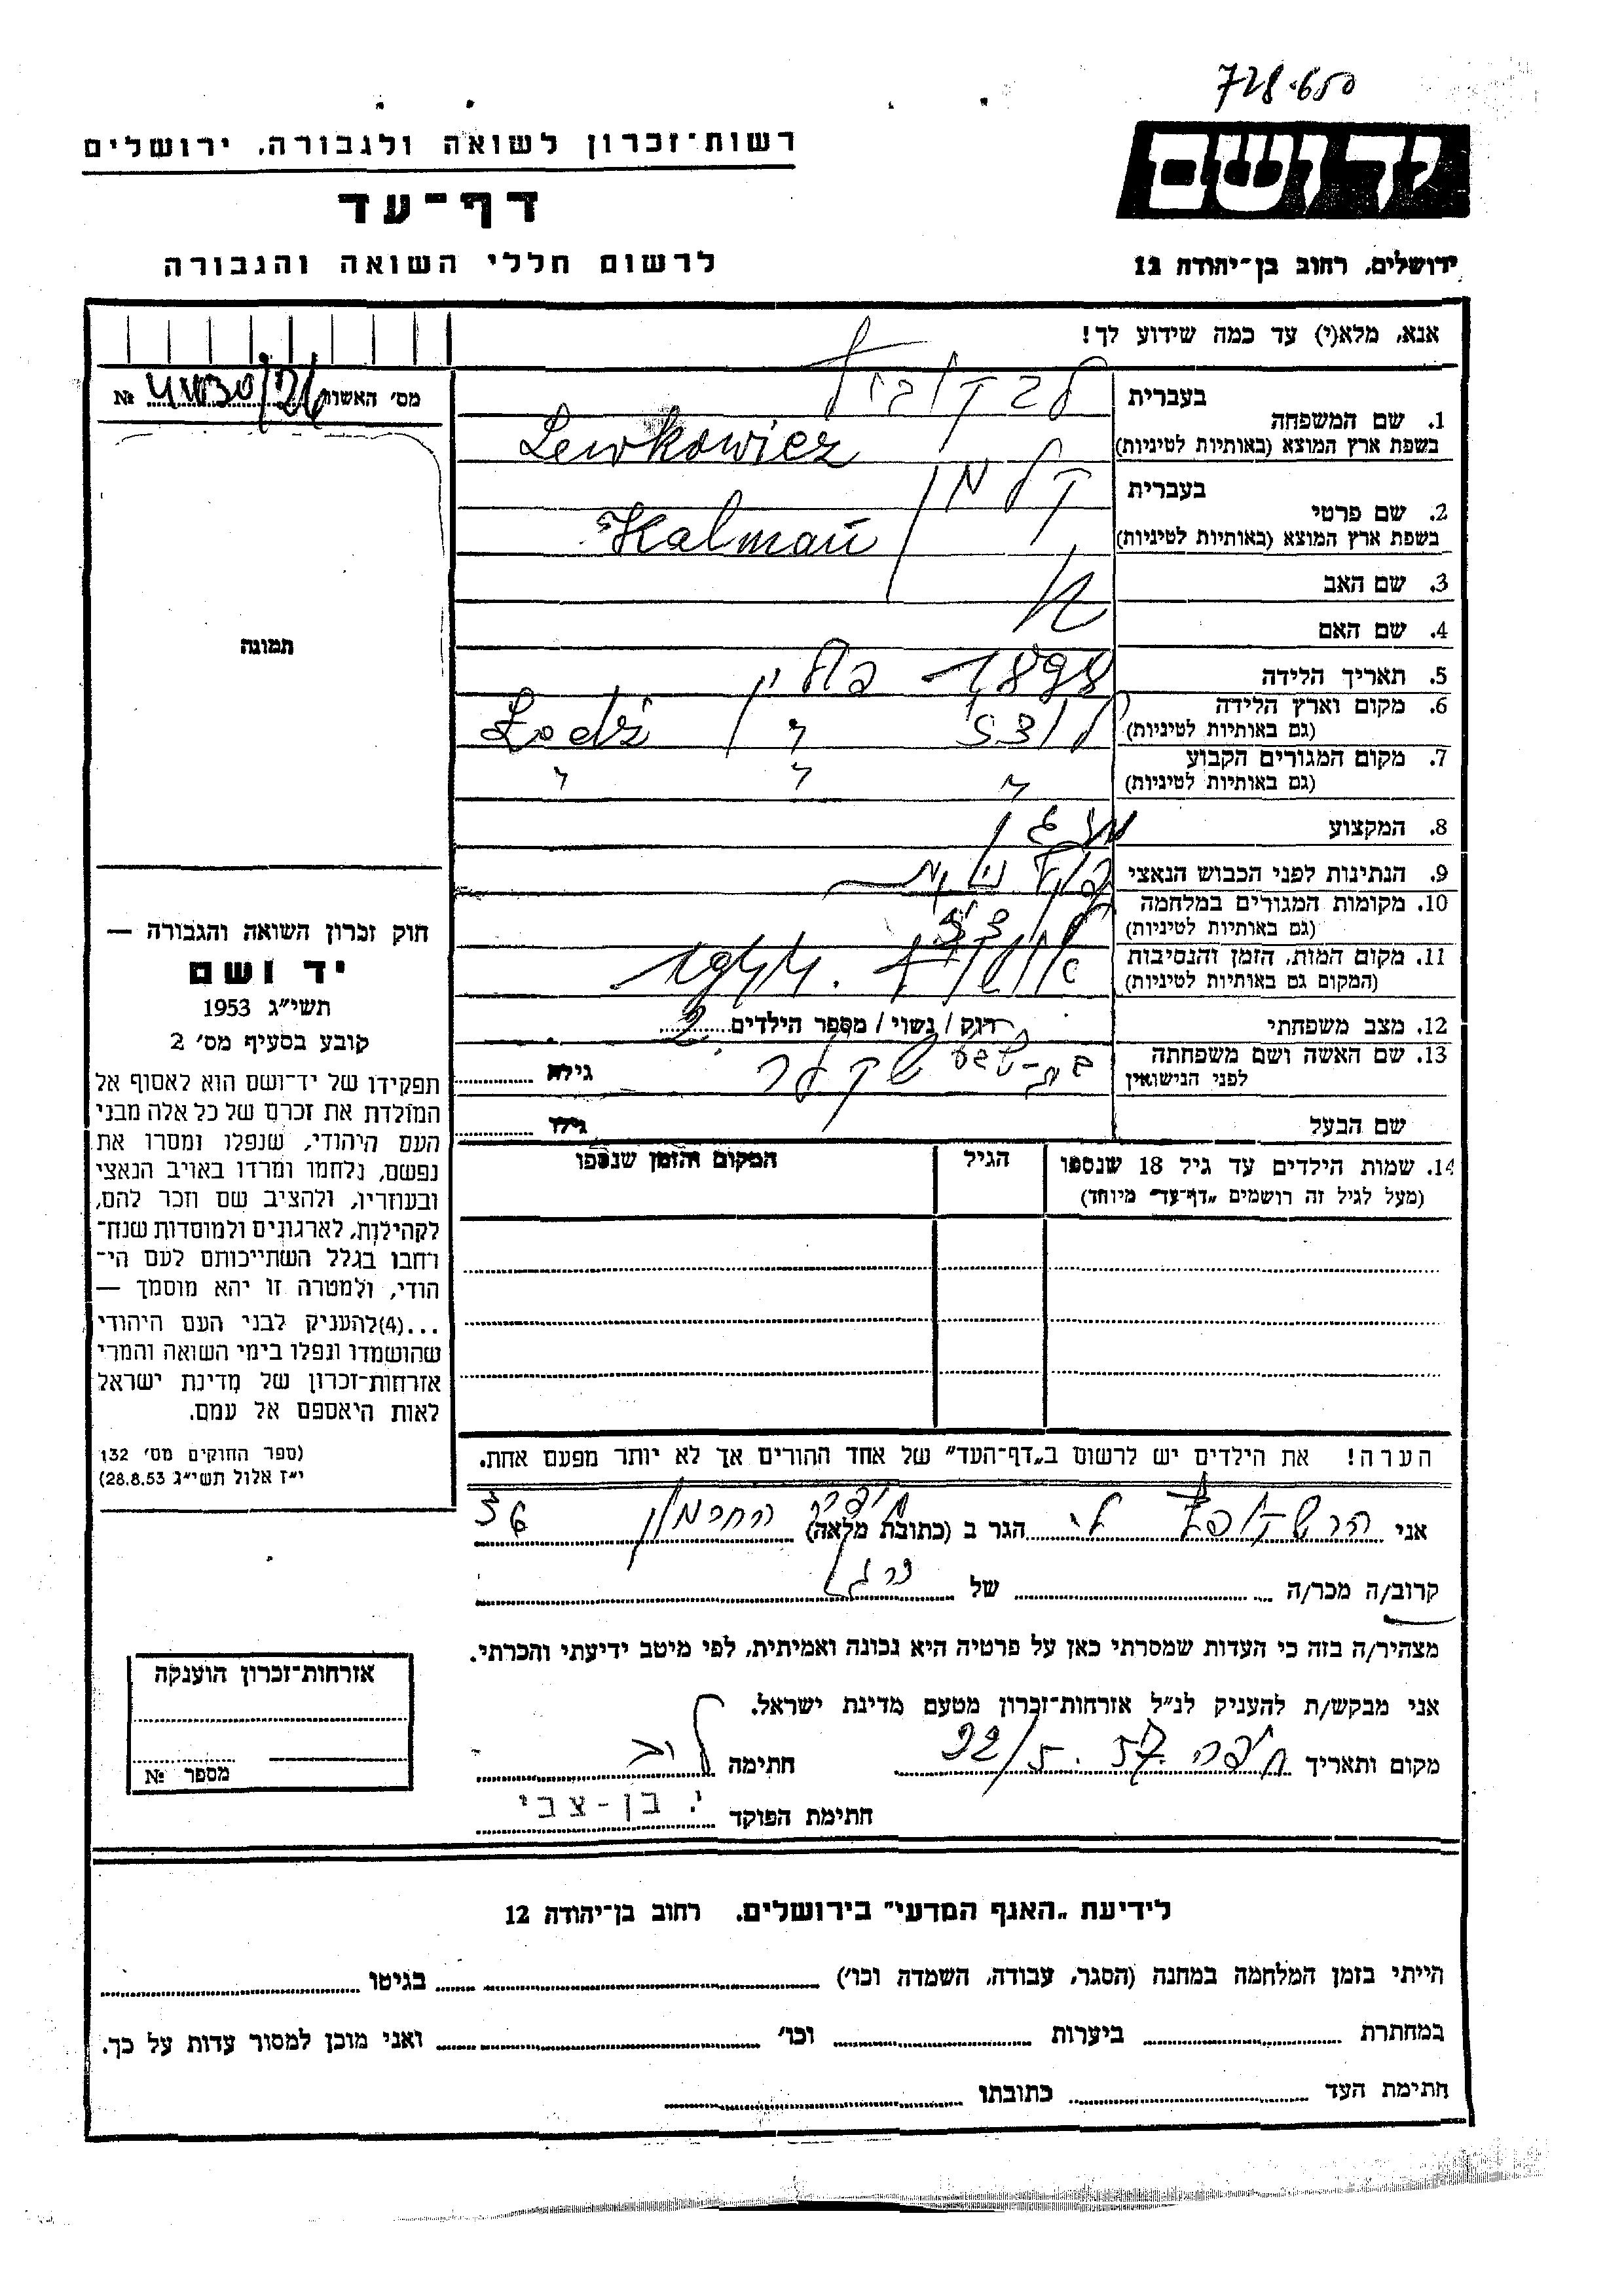 728.650
רשות־זכרון לשואה ולגבורה, ירושלים
יד ושם
דף־עד
לרשום חללי השואה והגבורה
ירושלים, רחוב בן־יהודה 12
אנא, מלא(י) עד כמה שידוע לך!
מס׳ האשות №
1. שם המשפחה
בעברית
בשפת ארץ המוצא (באותיות לטיניות)
Lewkowicz
2. שם פרטי
בעברית קלמן
בשפת ארץ המוצא (באותיות לטיניות)
Kalman
3. שם האב
4. שם האם
5. תאריך הלידה 1898
6. מקום וארץ הלידה
(גם באותיות לטיניות)
לודז׳ פולין Lodź
7. מקום המגורים הקבוע
(גם באותיות לטיניות)
8. המקצוע
9. הנתינות לפני הכבוש הנאצי
10. מקומות המגורים במלחמה
(גם באותיות לטיניות)
11. מקום המות, הזמן והנסיבות
(המקום גם באותיות לטיניות)
1944
12. מצב משפחתי
רוק / נשוי / מספר הילדים 2
13. שם האשה ושם משפחתה
לפני הנישואין
בת־שבע שקלר
גילה
שם הבעל
גילו
14. שמות הילדים עד גיל 18 שנספו
(מעל לגיל זה רושמים „דף־עד״ מיוחד)
הגיל
המקום והזמן שנספו
תמונה
חוק זכרון השואה והגבורה —
יד ושם
תשי״ג 1953
קובע בסעיף מס׳ 2
תפקידו של יד־ושם הוא לאסוף אל
המולדת את זכרם של כל אלה מבני
העם היהודי, שנפלו ומסרו את
נפשם, נלחמו ומרדו באויב הנאצי
ובעוזריו, ולהציב שם וזכר להם,
לקהילות, לארגונים ולמוסדות שנח־
רחבו בגלל השתייכותם לעם הי־
הודי, ולמטרה זו יהא מוסמך —
...(4)להעניק לבני העם היהודי
שהושמדו ונפלו בימי השואה והמרי
אזרחות־זכרון של מדינת ישראל
לאות היאספם אל עמם.
(ספר החוקים מס׳ 132
י״ז אלול תשי״ג 28.8.53)
הערה! את הילדים יש לרשום ב„דף־העד״ של אחד ההורים אך לא יותר מפעם אחת.
אני הגר ב (כתובת מלאה) חיפה החרמון 36
קרוב/ה מכר/ה של
מצהיר/ה בזה כי העדות שמסרתי כאן על פרטיה היא נכונה ואמיתית, לפי מיטב ידיעתי והכרתי.
אני מבקש/ת להעניק לנ״ל אזרחות־זכרון מטעם מדינת ישראל.
מקום ותאריך חיפה 22/5.57 חתימה
חתימת הפוקד י. בן-צבי
אזרחות־זכרון הוענקה
מספר №
לידיעת „האגף המדעי״ בירושלים, רחוב בן־יהודה 12
הייתי בזמן המלחמה במחנה (הסגר, עבודה, השמדה וכו׳) בגיטו
במחתרת ביערות וכו׳ ואני מוכן למסור עדות על כך.
חתימת העד כתובתו